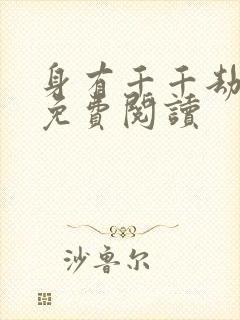 身有千千劫
免費閱讀
沙鲁尔